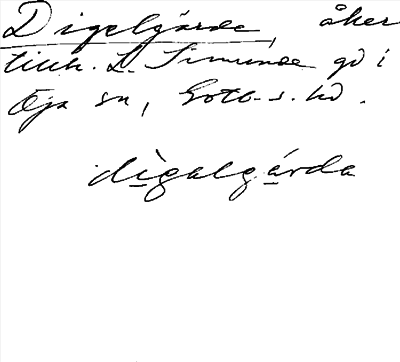 Digelgärde, åker
tillh. L. Simunde gd i
Öja sn, Gotl. s. hd.
dìgalgárda